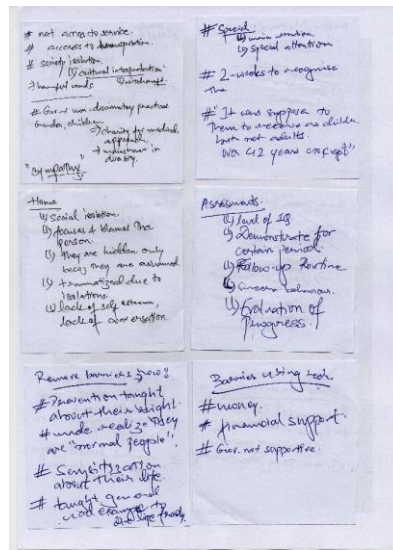 # not access to service.
# access to transportation.
# society isolation.
↳ cultural interpretation
↳ witchcraft.
→ harmful words
# Gov-t non-discriminatory practices
Gender, children
→ charity to medical
approach.
→ mainstream in
"sympathy"
# Special
↳ special attention
# 2-weeks to recognise
the
# "It was suppose to
Them to receive as children
but not adults.
Home
↳ Social isolation.
↳ focuses & blames the
person.
↳ they are hidden only
becos they are ashamed.
↳ traumatized due to
isolations
↳ lack of self esteem,
lack of conversation.
Assessments.
↳ level of IQ
↳ Demonstrate for
certain period.
↳ Follow-up Routine
↳ behaviour.
↳ Evaluation of
Progress.
Remove barriers how?
# Prevention taught
about their Right.
# made realize they
are "normal people".
# Sensitization
about their life.
# taught general
Barrier using tech.
# money.
# financial support.
# Gov. not supportive.